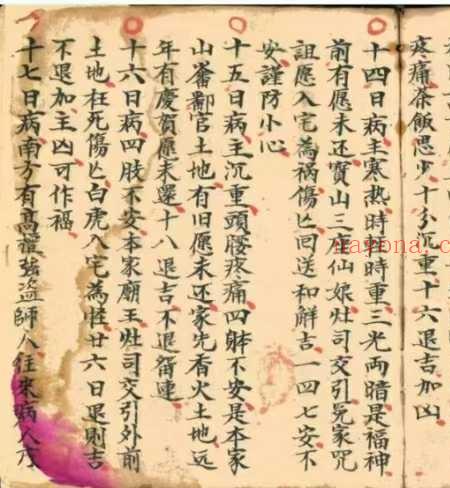 疼痛茶飯思少十分沉重十六退吉加凶
十四日病主寒热時輕時重三光両暗是福神
前有愿未还寳山三庙仙娘灶司交引冤家咒
詛愿入宅為祸傷亡回送和解吉一四七安不
安謹防小心
十五日病主沉重頭腰疼痛四躰不安是本家
山畨鄒官土地有旧愿未还家先香火土地远
年有慶贺愿未還十八退吉不退留連
十六日病四肢不安本家廟王灶司交引外前
土地枉死傷亡白虎入宅為怪廿六日退則吉
不退加主凶可作福
十七日病南方有高強盗師人往來病人
nayona.cn